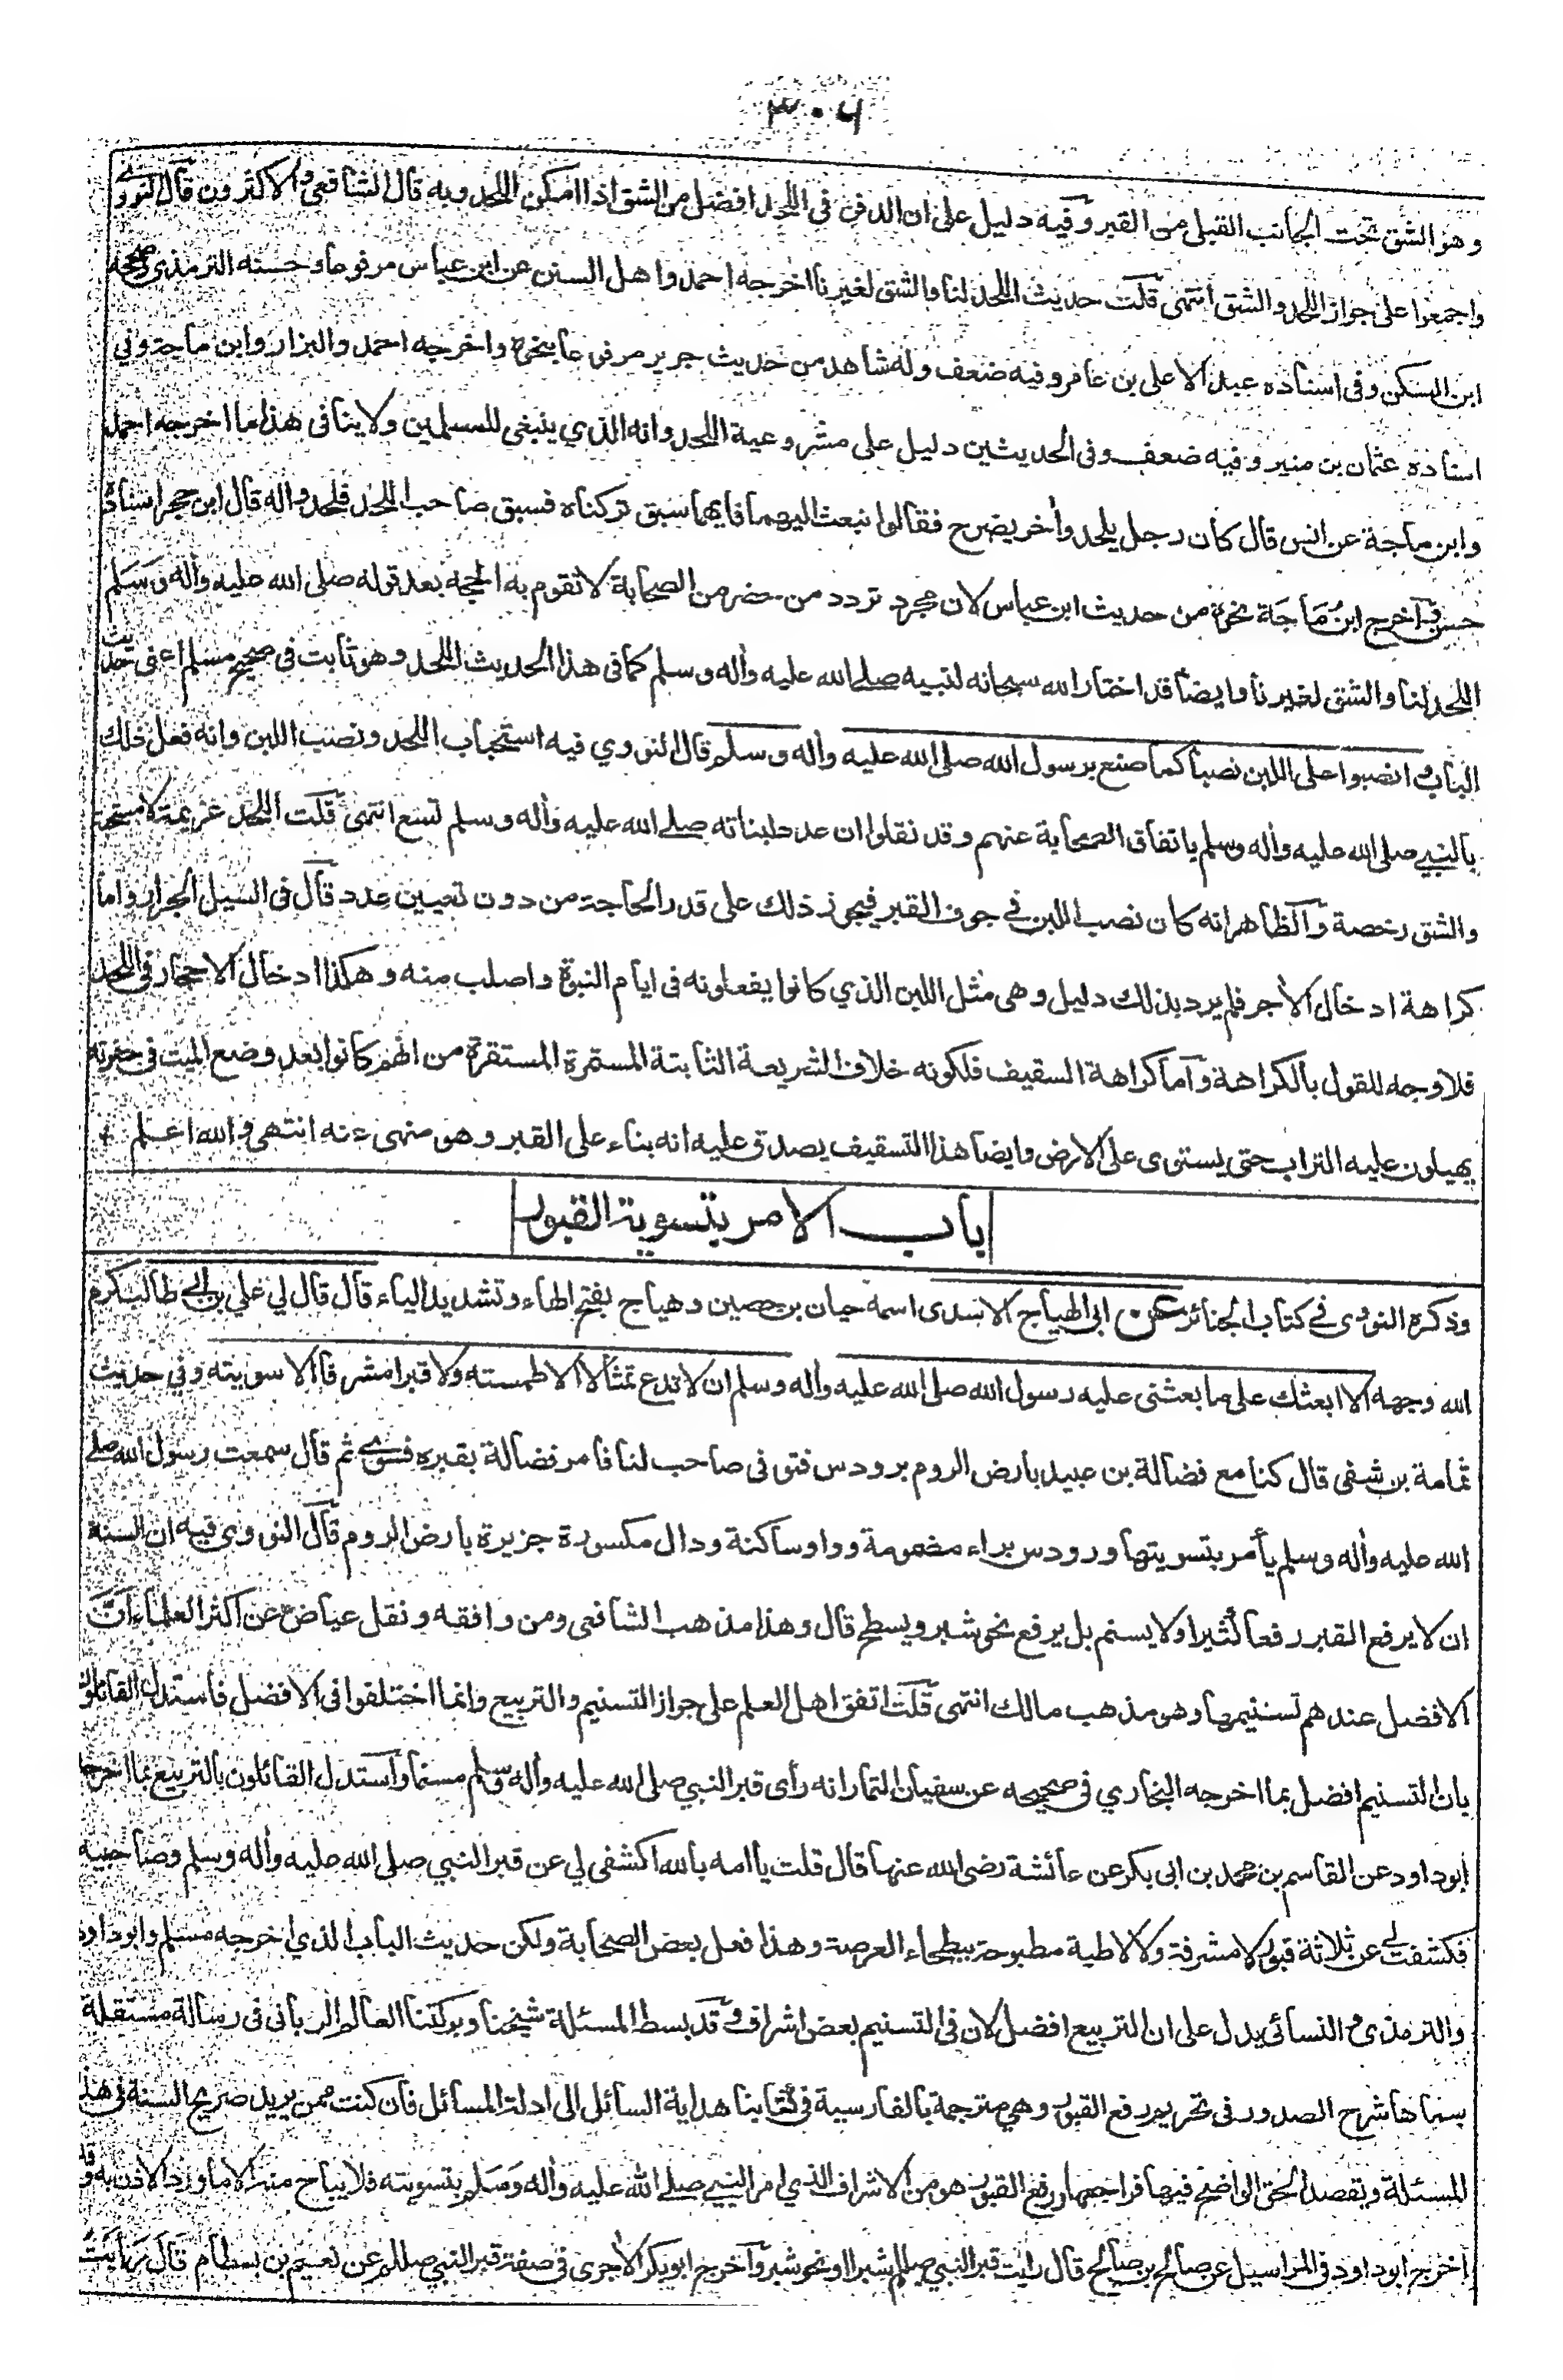 ٣٠٦
وهو الشق تحت الجانب القبلى من القبر وفيه دليل على ان الدفن فى اللحد افضل من الشق اذا امكن اللحد وبه قال الشافعى والاكثرون قال النووي
واجمعوا على جواز اللحد والشق انتهى قلت حديث اللحد لنا والشق لغيرنا اخرجه احمد واهل السنن عن ابن عباس مرفوعا وحسنه الترمذى وصححه
ابن السكن وفى اسناده عبد الاعلى بن عامر وفيه ضعف وله شاهد من حديث جرير مرفوعا بنحوه واخرجه احمد والبزار وابن ماجة وفي
اسناده عثمان بن منير وفيه ضعف وفى الحديثين دليل على مشروعية اللحد وانه الذي ينبغى للمسلمين ولا ينافى هذا ما اخرجه احمد
وابن ماجة عن انس قال كان رجل يلحد وأخر يضرح فقالوا نبعث اليهما فايهما سبق تركناه فسبق صاحب اللحد فلحدوا له قال ابن حجر اسناده
حسن وآخرج ابن ماجة نحوه من حديث ابن عباس لان مجرد تردد من حضر من الصحابة لا تقوم به الحجة بعد قوله صلى الله عليه وأله وسلم
اللحد لنا والشق لغيرنا وايضا قد اختار الله سبحانه لنبيه صلے الله عليه وأله وسلم كما فى هذا الحديث اللحد وهو ثابت فى صحيح مسلم اعنى حديث
الباب وانصبوا على اللبن نصبا كما صنع برسول الله صلى الله عليه وأله وسلم قال النووي فيه استحباب اللحد ونصب اللبن وانه فعل ذلك
بالنبي صلى الله عليه وأله وسلم باتفاق الصحابة عنهم وقد نقلوا ان عدد لبناته صلے الله عليه وأله وسلم تسع انتهى قلت اللحد عزيمة لا مستحبة
والشق رخصة والظاهر انه كان نصب اللبن في جوف القبر فيجوز ذلك على قدر الحاجة من دون تعيين عدد قال فى السيل الجرار واما
كراهة ادخال الأجر فلم يرد بذلك دليل وهى مثل اللبن الذي كانوا يفعلونه فى ايام النبوة واصلب منه وهكذا ادخال الاحجار فى اللحد
فلا وجه للقول بالكراهة وآما كراهة السقيف فلكونه خلاف الشريعة الثابتة المستمرة المستقرة من انهم كانوا بعد وضع الميت فى حفرته
يهيلون عليه التراب حتى يستوى على الارض وايضا هذا التسقيف يصدق عليه انه بناء على القبر وهو منهى عنه انتهى والله اعلم +
باب الامر بتسوية القبور
وذكره النووى في كتاب الجنائز عن ابى الهياج الاسدى اسمه حيان بن حصين وهياج بفتح الهاء وتشديد الياء قال قال لي علي بن ابي طالب كرم
الله وجهه الا ابعثك على ما بعثنى عليه رسول الله صلى الله عليه وأله وسلم ان لا تدع تمثالا الا طمسته ولا قبرا مشرفا الا سويته وفي حديث
ثمامة بن شفى قال كنا مع فضالة بن عبيد بارض الروم برودس فتوفى صاحب لنا فامر فضالة بقبره فسوي ثم قال سمعت رسول الله صلے
الله عليه وأله وسلم يأمر بتسويتها ورودس براء مضمومة وواو ساكنة ودال مكسورة جزيرة بارض الروم قال النووى فيه ان السنة
ان لا يرفع القبر رفعا كثيرا ولا يسنم بل يرفع نحو شبر ويسطح قال وهذا مذهب الشافعى ومن وافقه ونقل عياض عن اكثر العلماء انّ
الافضل عندهم تسنيمها وهو مذهب مالك انتهى قلت اتفق اهل العلم على جواز التسنيم والتربيع وانما اختلفوا فى الافضل فاستدل القائلون
بان التسنيم افضل بما اخرجه البخاري فى صحيحه عن سفيان التمار انه رأى قبر النبي صلى الله عليه وأله وسلم مسنما وآستدل القائلون بالتربيع بما اخرجه
ابو داود عن القاسم بن محمد بن ابى بكر عن عائشة رضى الله عنها قال قلت يا امه بالله اكشفى لي عن قبر النبي صلى الله عليه وأله وسلم وصاحبيه
فكشفت لي عن ثلاثة قبور لا مشرفة ولا لاطية مطبوحة ببطحاء العرصة وهذا فعل بعض الصحابة ولكن حديث الباب الذي اخرجه مسلم وابو داود
والترمذى والنسائى يدل على ان التربيع افضل لان فى التسنيم بعض اشراف وقد بسط المسئلة شيخنا وبركتنا العالم الربانى فى رسالة مستقلة
سماها شرح الصدور فى تحريم رفع القبور وهي مترجمة بالفارسية فى كتابنا هداية السائل الى ادلة المسائل فان كنت ممن يريد صريح السنة فى هذه
المسئلة ويقصد الحق الواضح فيها فراجعها ورفع القبور هو من الاشراف الذي امر النبي صلے الله عليه وأله وسلم بتسويته فلا يباح منه الا ما ورد الاذن به وقد
اخرج ابو داود فى المراسيل عن صالح بن صالح قال رايت قبر النبي صللم شبرا او نحو شبر وآخرج ابو بكر الأجرى فى صفة قبر النبي صللم عن نعيم بن بسطام قال رأيت